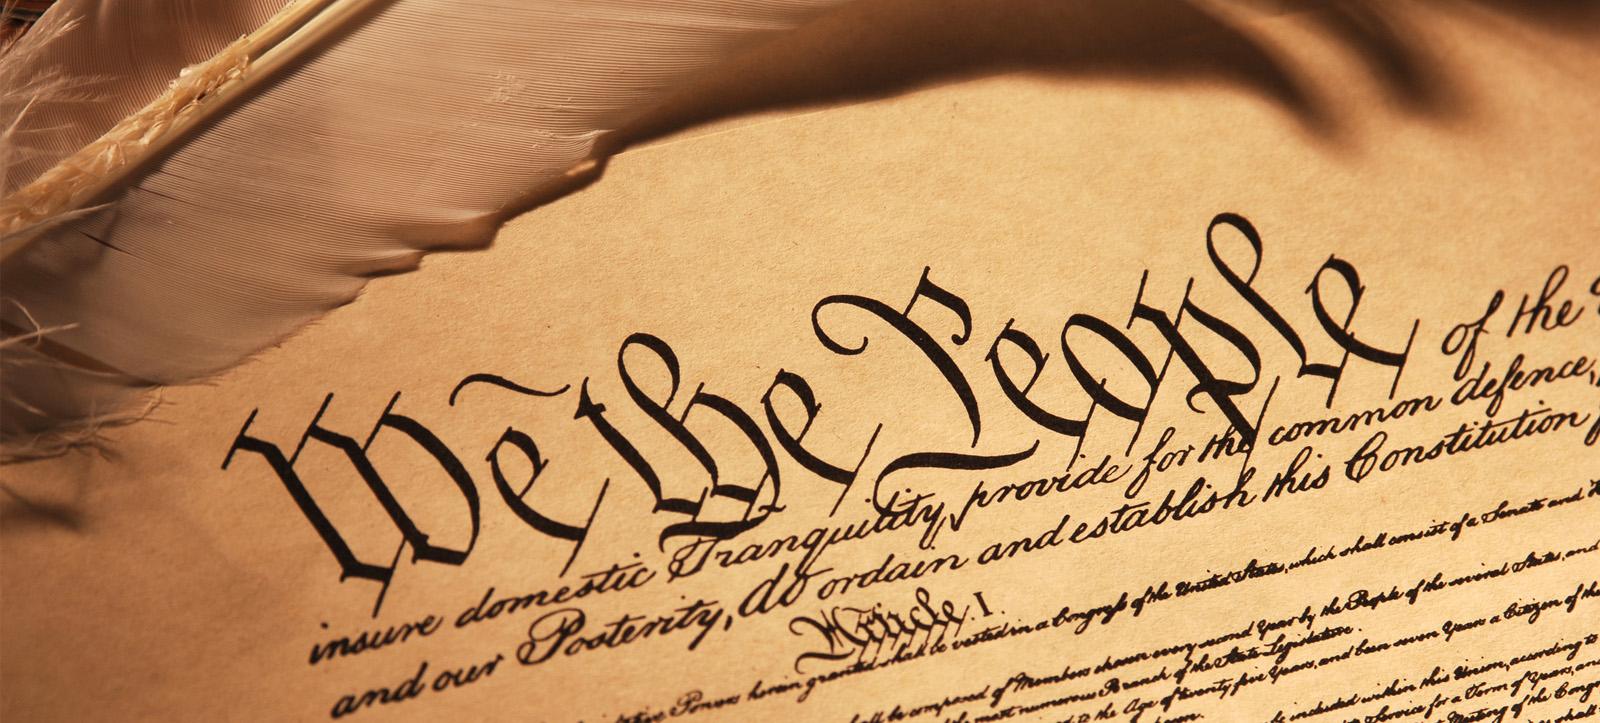 We the People of the
insure domestic Tranquility, provide for the common defence,
and our Posterity, do ordain and establish this Constitution
Article. I.
Powers herein granted shall be vested in a Congress of the United States, which shall consist of a Senate and
shall be composed of Members chosen every second Year by the People of the several States, and
the most numerous Branch of the State Legislature.
to the Age of twenty five Years, and been seven Years a Citizen of the
been
included within this Union, according to
Service for a Term of Years, and
Meeting of the
shall